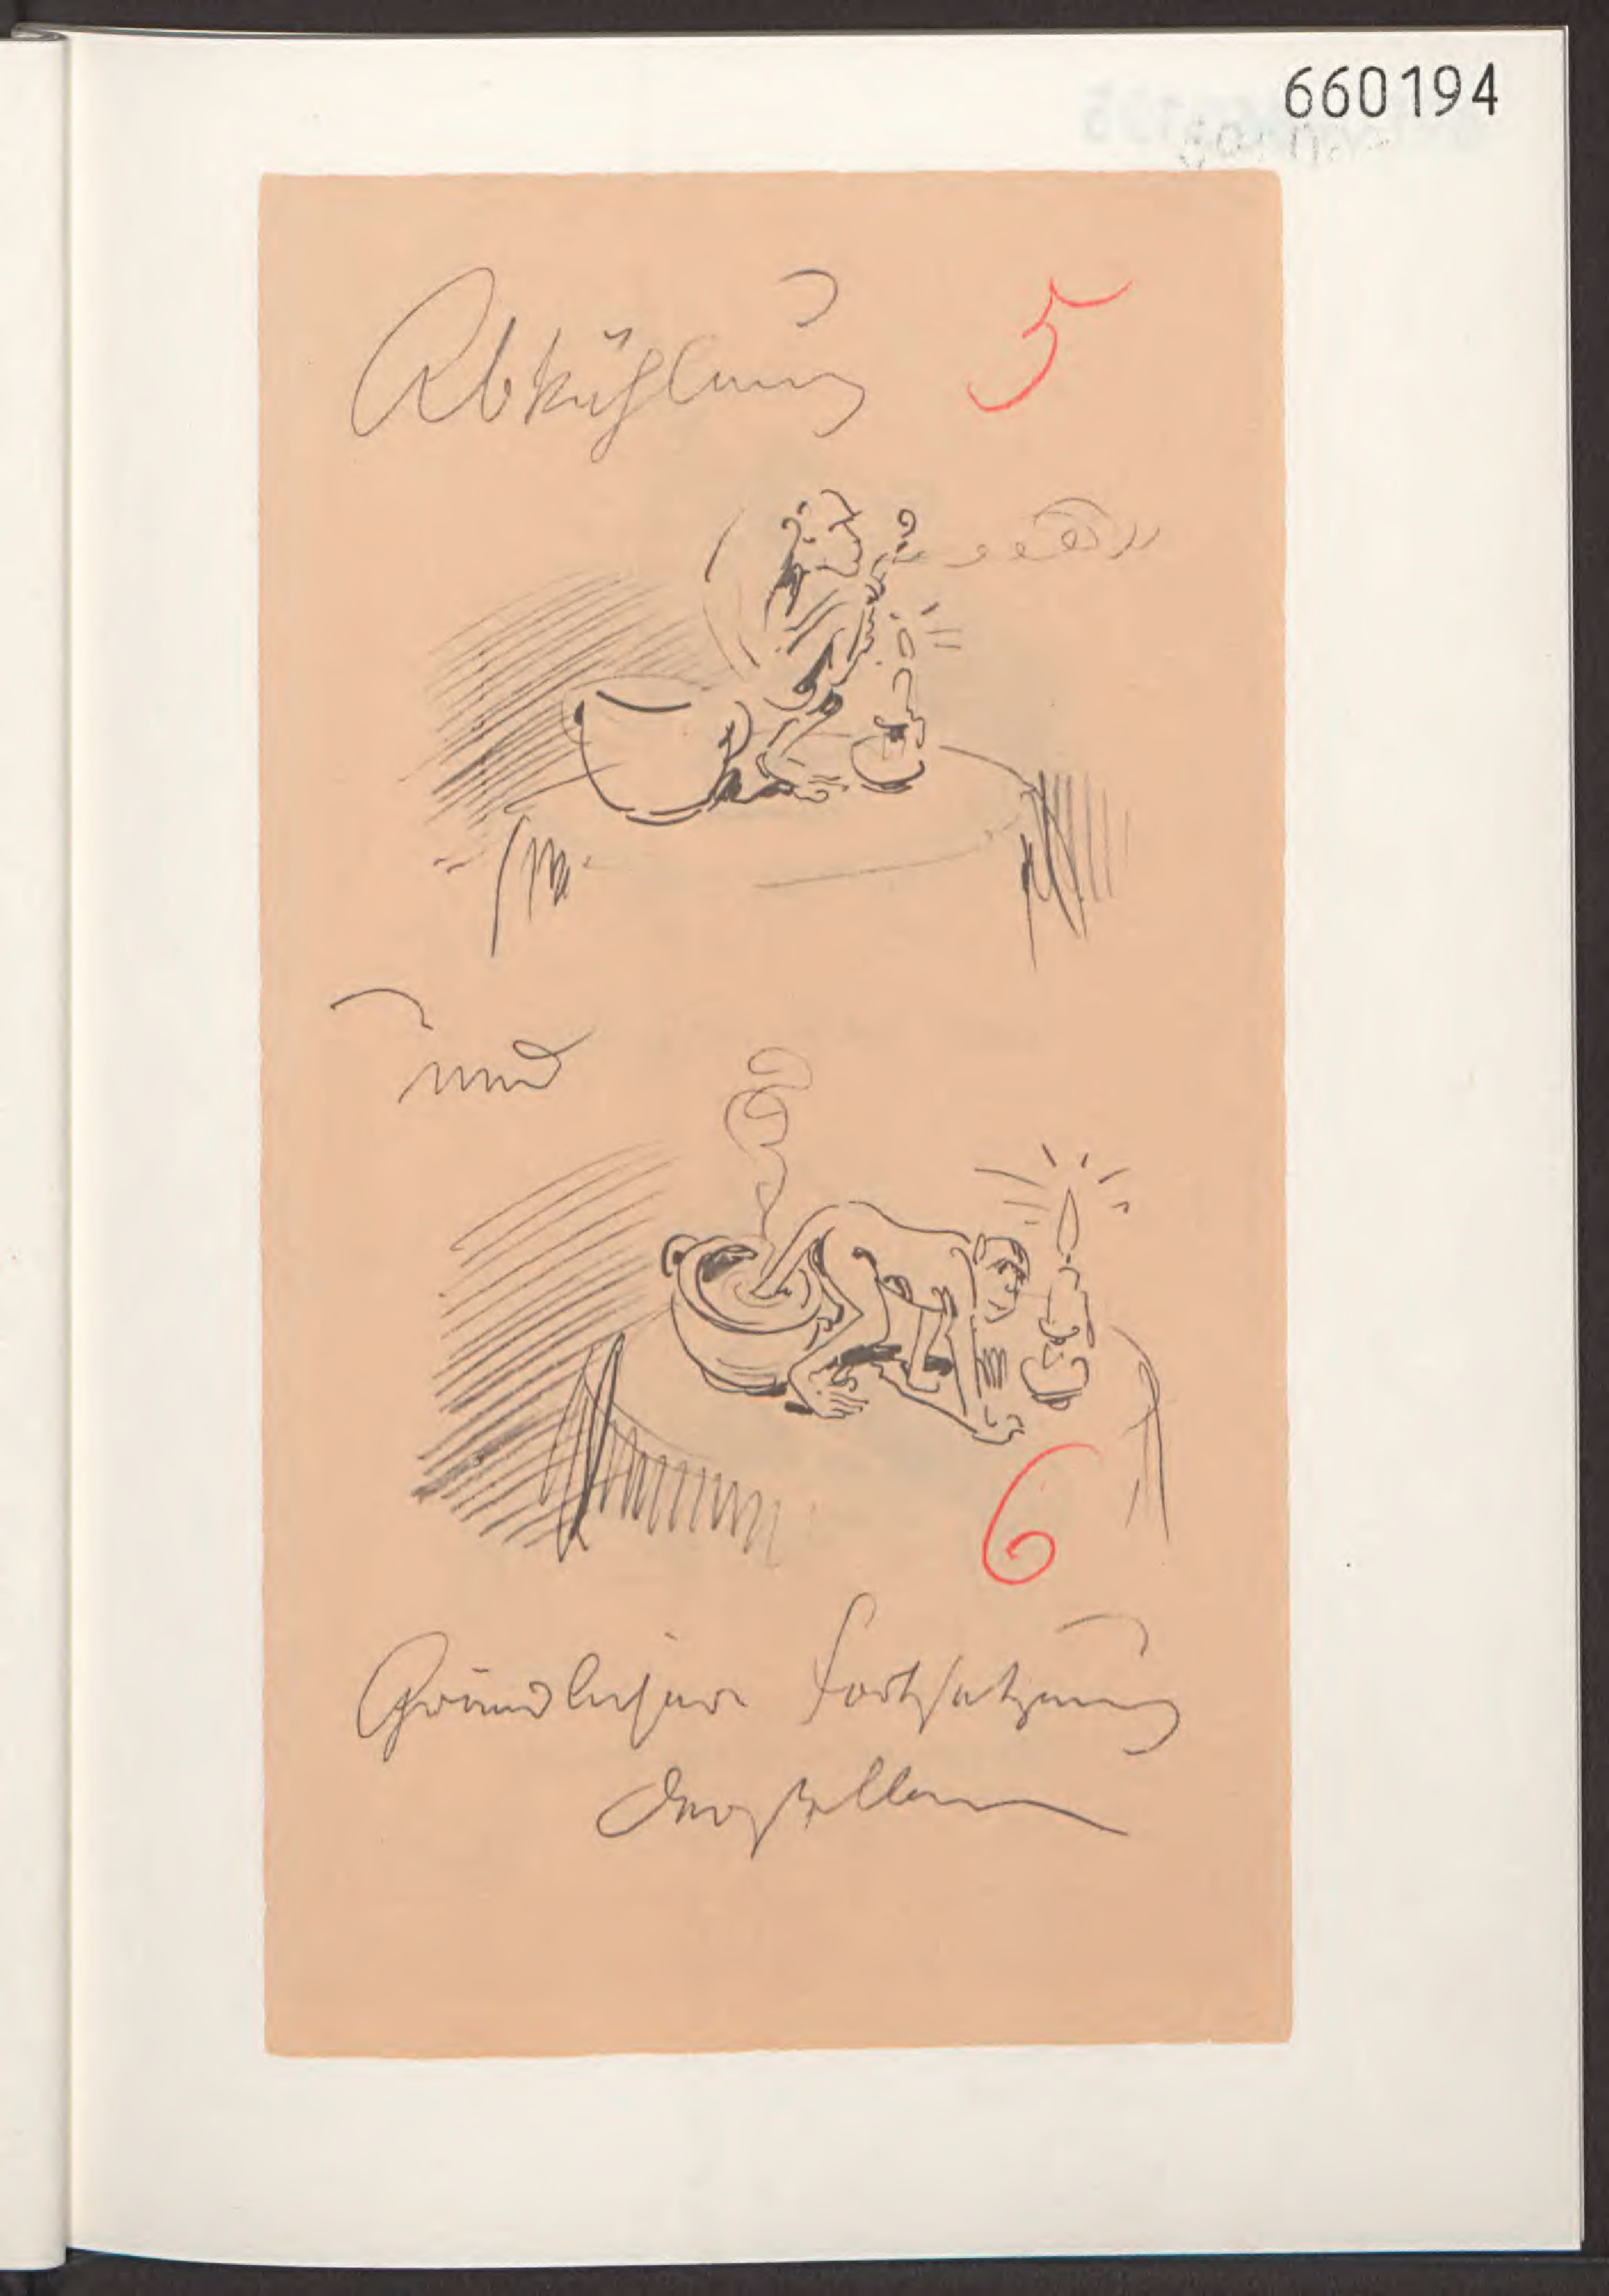 660194
Abkühlung 5
und
6
Gründlichere Fortsetzung
derselben